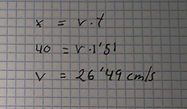 x = v · t
40 = v · 1'51
v = 26'49 cm/s